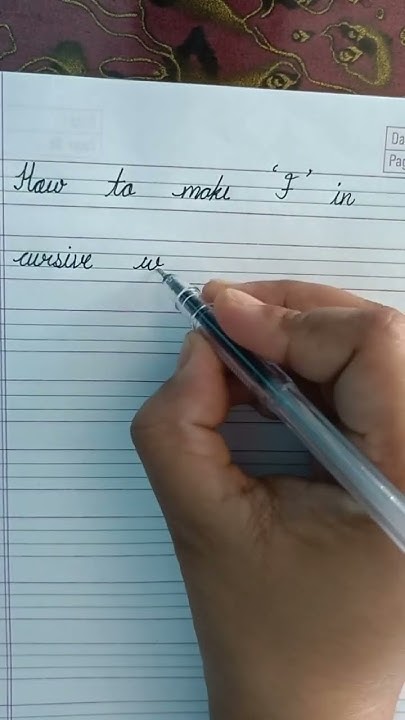 Da
Pag
How to make 'F' in
cursive w